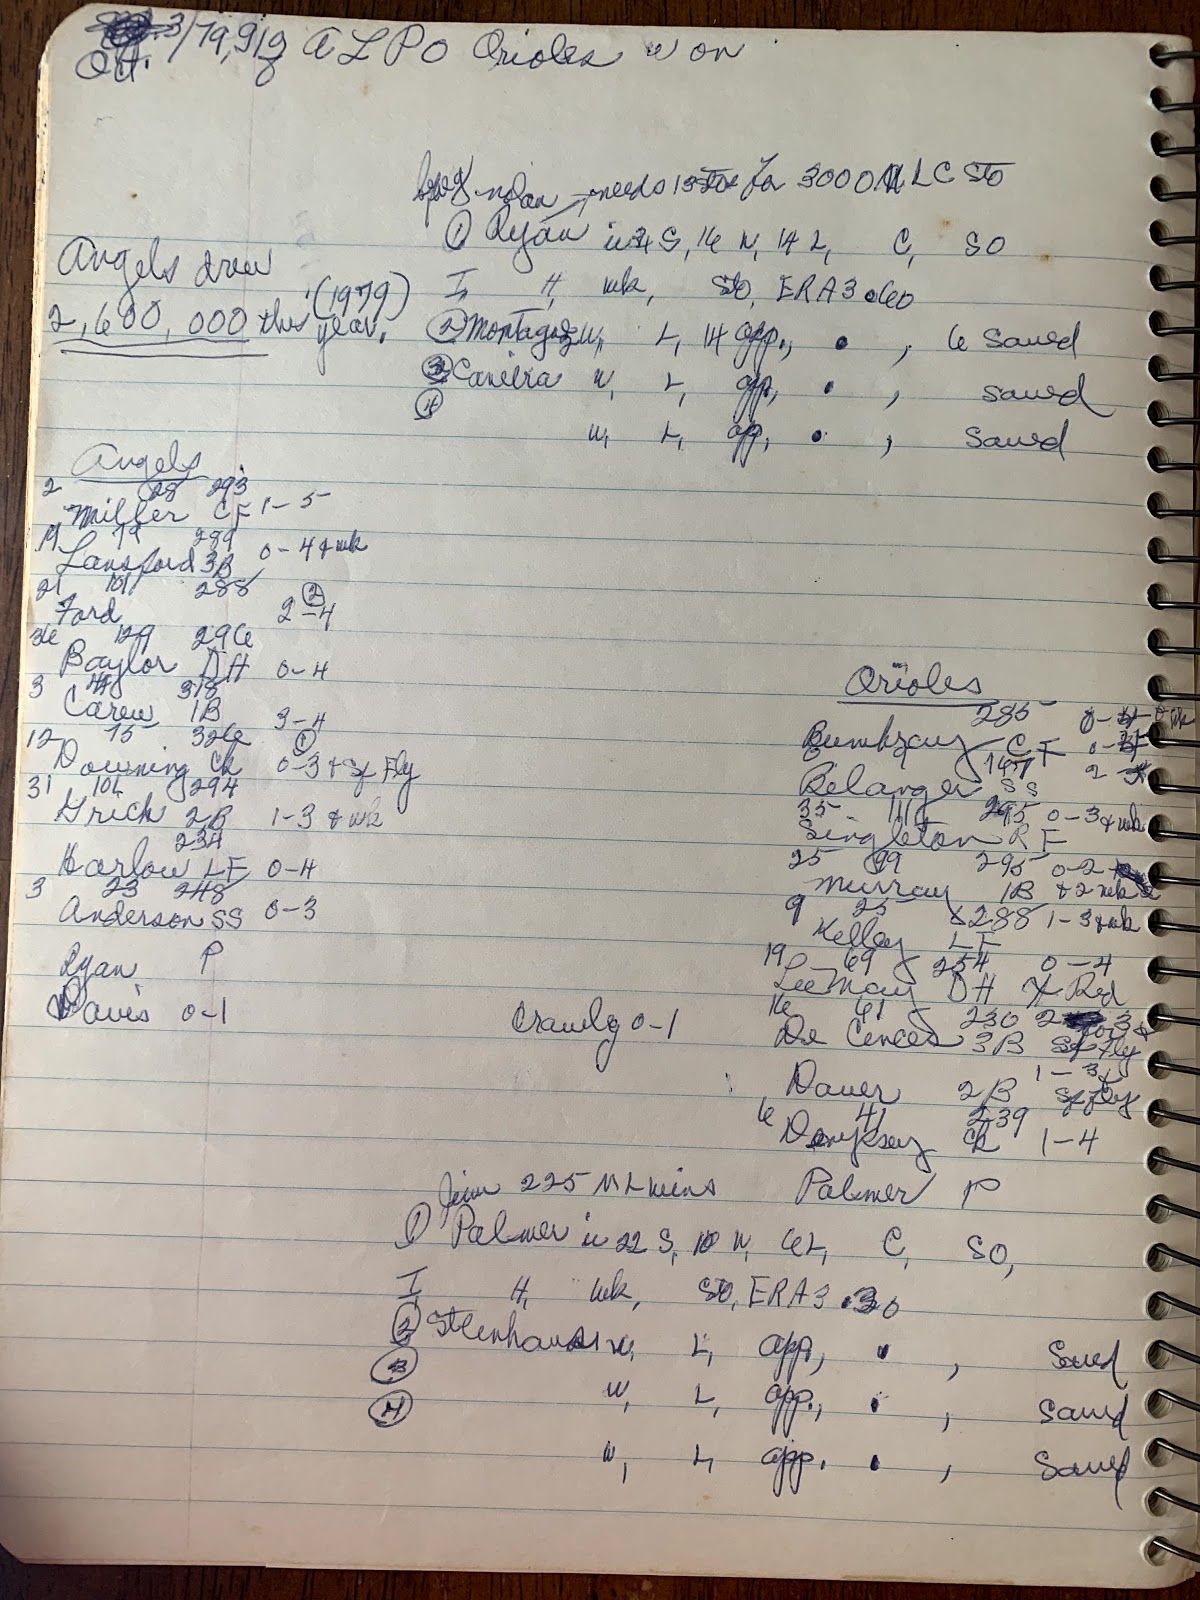 Oct. 3/79, 9/3 A L P O Orioles won
Nolan needs 13 Sto for 3000 C Sto
① Ryan in 34 S, 16 W, 14 L, C, SO
I, H, wk, Sto, ERA 3.60
Angels drew
2,600,000 this year. (1979)
② Montague W, L, 14 app., . , 6 Saved
③ W, L, app, . , Saved
④
W, L, app, . , Saved
Angels
2 28 293
Miller CF 1-5
19 79 289
Lansford 3B 0-4 & wk
21 101 288
Ford 2-4 ②
36 139 296
Baylor DH 0-4
3 44 318
Carew 1B 3-4
12 75 326
Downing Ck 0-3 & Sf Fly ①
31 101 294
Grich 2B 1-3 & wk
234
Harlow LF 0-4
3 23 248
Anderson SS 0-3
Ryan P
Davis 0-1
Crowley 0-1
Orioles
285
Bumbry CF
167
Belanger SS
35 111 295 0-3 & wk
Singleton RF
25 99 295 0-2
Murray 1B & 2 wk
9 25 288 1-3 & wk
Kelley LF
19 69 254 0-4
Lee May DH
16 61 230 2 3 &
De Cences 3B Sf Fly
1-3 &
Dauer 2B Sf Fly
6 41 239
Dempsey Ck 1-4
Jim 225 M L wins Palmer P
① Palmer in 22 S, 10 W, 6 L, C, SO,
I H, wk, Sto, ERA 3.30
② Stenhouse W, L, app, . , Saved
③
W, L, app., . , Saved
④
W, L, app. . , Saved